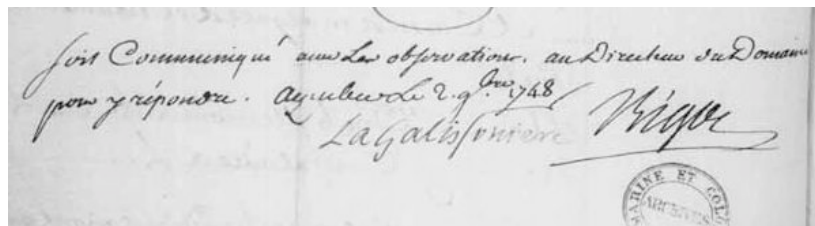 soit Communiqué avec Les observations. au Directeur du Domaine
pour y répondre. a quebec Le 2. 9.bre 1748
LaGalissonière Bigot
MARINE ET COL
ARCHIVES